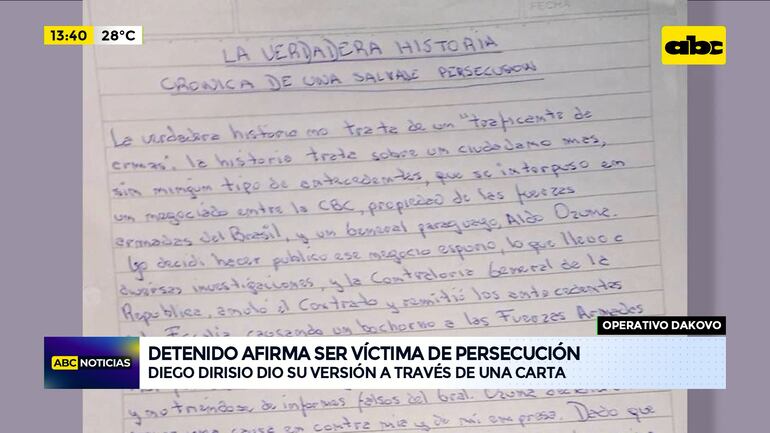 13:40 28°C
FECHA
abc
LA VERDADERA HISTORIA
CRONICA DE UNA SALVAJE PERSECUSION
La verdadera historia no trata de un "traficante de
armas". La historia trata sobre un ciudadano mas,
sin ningun tipo de antecedentes, que se interpuso en
un negociado entre la CBC, propiedad de las fuerzas
armadas del Brasil, y un General paraguayo, Aldo Ozuna.
Yo decidi hacer publico ese negocio espurio, lo que llevo a
diversas investigaciones, y la Contraloria General de la
Republica, anulo el Contrato y remitio los antecedentes
Fiscalia causando un bochorno a las Fuerzas Armadas
OPERATIVO DAKOVO
ABC NOTICIAS
DETENIDO AFIRMA SER VÍCTIMA DE PERSECUCIÓN
DIEGO DIRISIO DIO SU VERSIÓN A TRAVÉS DE UNA CARTA
y nutriendose de informes falsos del Gral. Ozuna
una causa en contra mia y de mi empresa. Dado que